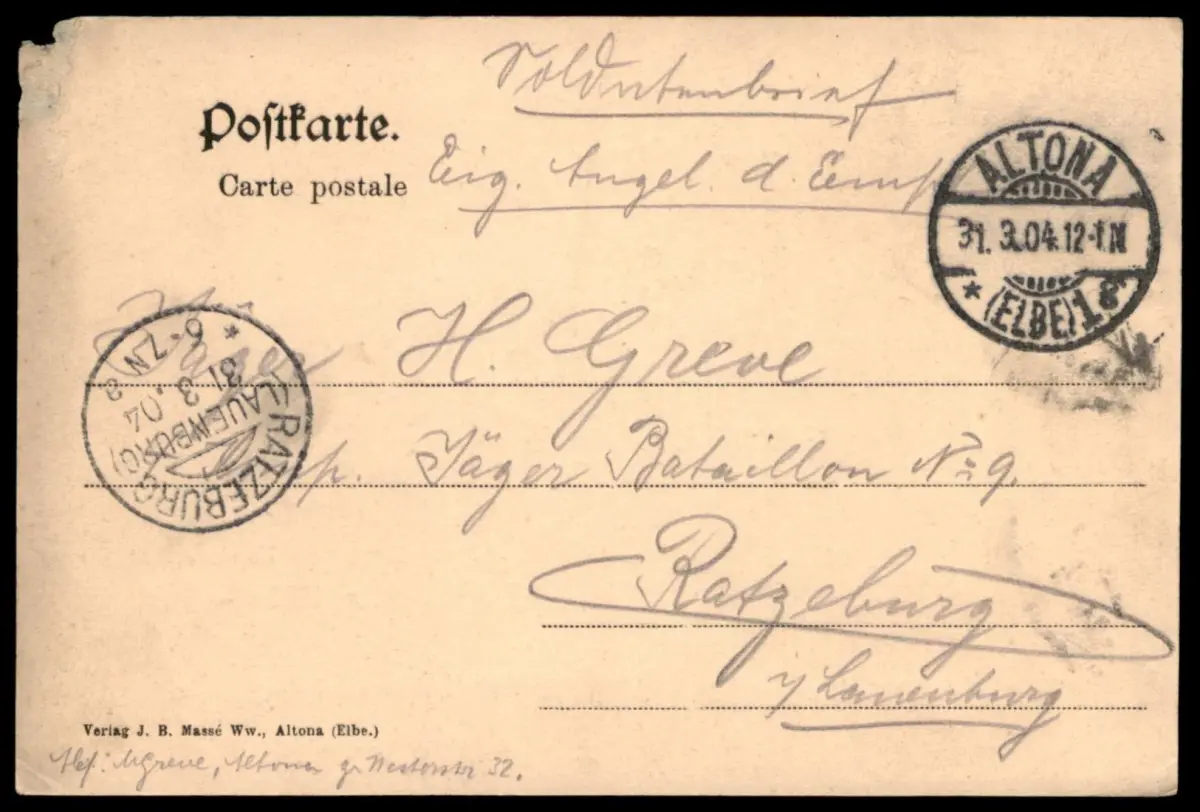 Soldatenbrief
Postkarte.
Carte postale
Eig. Angel. d. Emp
ALTONA
31. 3.04.12-1N
* (ELBE) 1 g
Jäger H. Greve
* 6-7N a
31
3.04
(LAUENBURG)
RATZEBURG
Comp. Jäger Bataillon No 9.
Ratzeburg
i/ Lauenburg
Verlag J. B. Massé Ww., Altona (Elbe.)
Abs: Greve, Altona gr Westerstr 32.